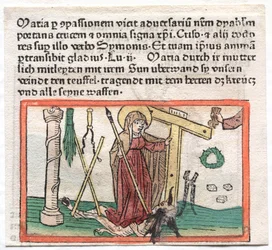 Maria p ɔpassionem vicit aduersariũ nr̃m dyabłm
portans crucem et omnia signa xp̃i. Cuſo. et alij docto
res sup illo verbo Symonis. Et tuam ip̃ius animã
ptransibit gladius. Lu.ij. Maria durch ir mutter
lich mitleyden mit irm Sun vberwand sy vnsern
veindt den teuffel. tragendt mit dem hertzen dz kreucz
vnd alle seyne waffen.